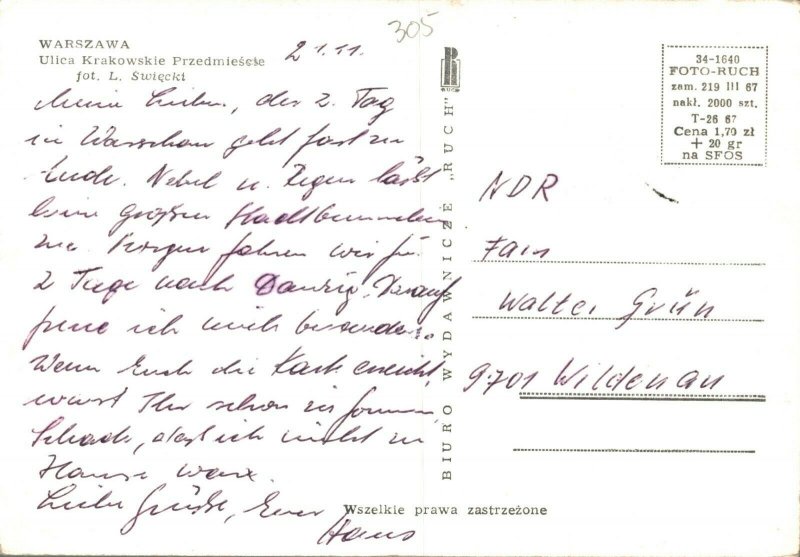 305
WARSZAWA
Ulica Krakowskie Przedmieście
fot. L. Święcki
21.11.
Meine Lieben, der 2. Tag
in Warschau geht fast zu
Ende. Nebel u. Regen läßt
keine großen Stadtbummelen
zu. Morgen fahren wir für
2 Tage nach Danzig. Darauf
freue ich mich besonders.
Wenn Euch die Karte erreicht,
wart Ihr schon in
Schade, daß ich nicht zu
Hause war.
Liebe Grüße, Euer
Hans
BIURO WYDAWNICZE „RUCH"
RUCH
34-1640
FOTO-RUCH
zam. 219 III 67
nakł. 2000 szt.
T-26 67
Cena 1,70 zł
+ 20 gr
na SFOS
NDR
Fam
Walter Grün
9701 Wildenau
Wszelkie prawa zastrzeżone